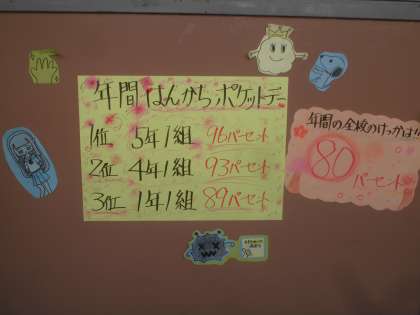 年間はんからポケットデー
1位 5年1組 96パーセント
2位 4年1組 93パーセント
3位 1年1組 89パーセント
年間の全校のけっかは!!
80
パーセント